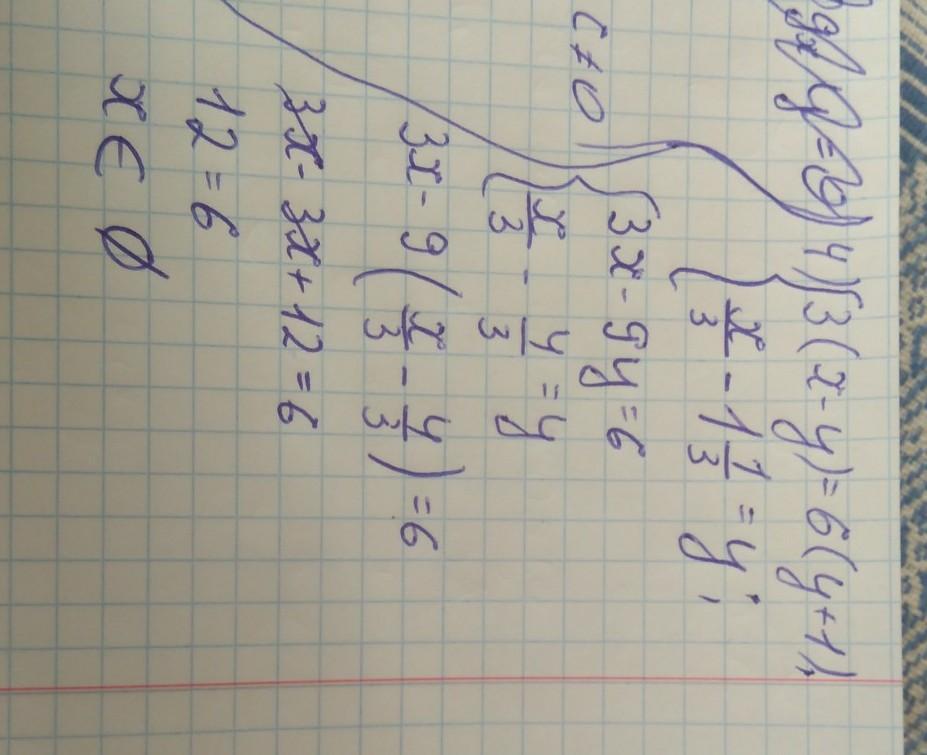 4) { 3(x-y)=6(y+1),
x/3 - 1 1/3 = y;
{ 3x - 9y = 6
x/3 - 4/3 = y
c ≠ 0
3x - 9(x/3 - 4/3) = 6
3x - 3x + 12 = 6
12 = 6
x ∈ Ø